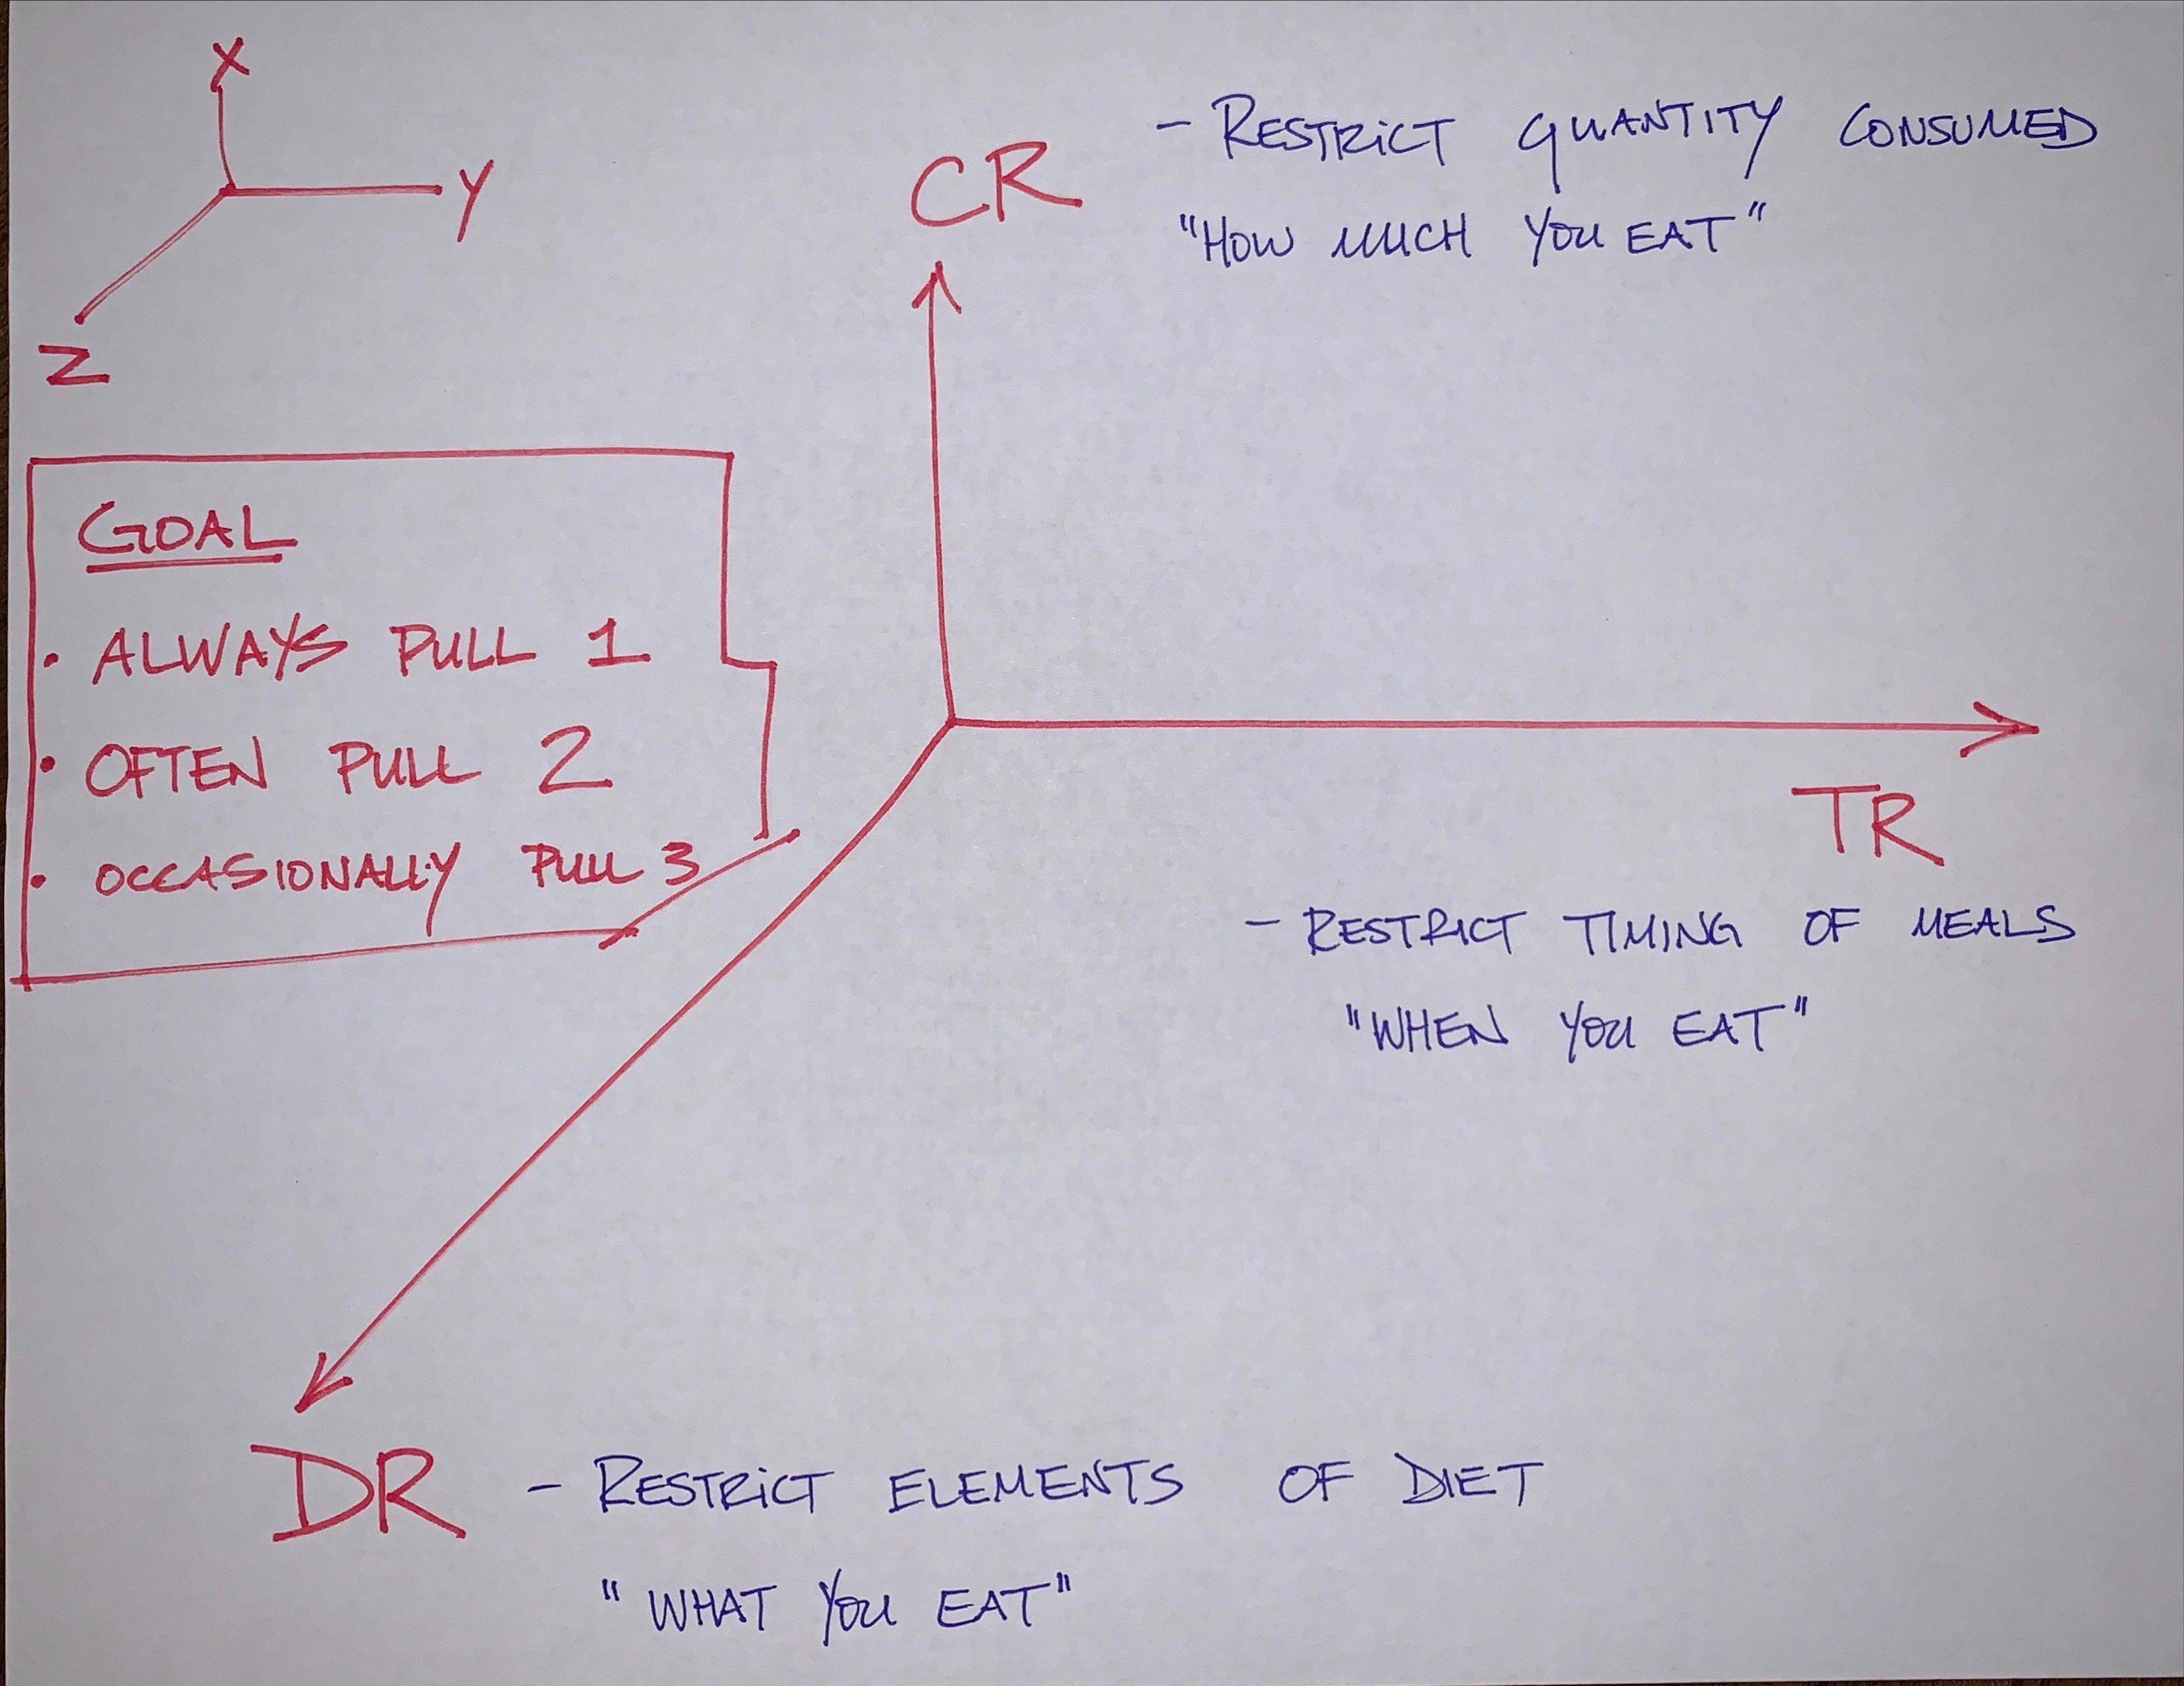 X
Y
Z
CR
- RESTRICT QUANTITY CONSUMED
"HOW MUCH YOU EAT"
GOAL
• ALWAYS PULL 1
• OFTEN PULL 2
• OCCASIONALLY PULL 3
TR
- RESTRICT TIMING OF MEALS
"WHEN YOU EAT"
DR - RESTRICT ELEMENTS OF DIET
"WHAT YOU EAT"